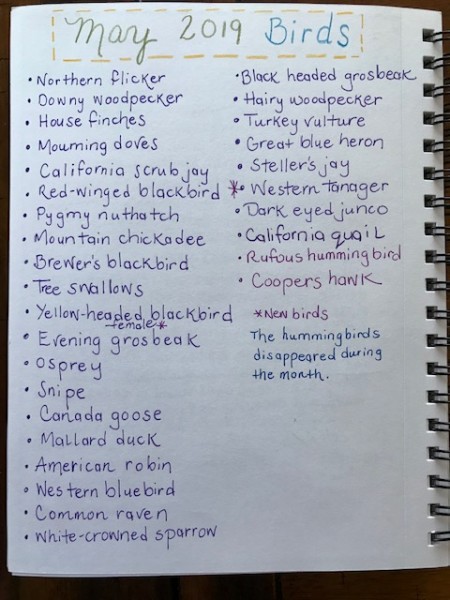 May 2019 Birds
• Northern flicker
• Downy woodpecker
• House finches
• Mourning doves
• California scrub jay
• Red-winged blackbird
• Pygmy nuthatch
• Mountain chickadee
• Brewer's blackbird
• Tree swallows
• Yellow-headed blackbird
female *
• Evening grosbeak
• Osprey
• Snipe
• Canada goose
• Mallard duck
• American robin
• Western bluebird
• Common raven
• White-crowned sparrow
• Black headed grosbeak
• Hairy woodpecker
• Turkey vulture
• Great blue heron
• Steller's jay
* • Western tanager
• Dark eyed junco
• California quail
• Rufous hummingbird
• Coopers hawk
* New birds
The hummingbirds
disappeared during
the month.